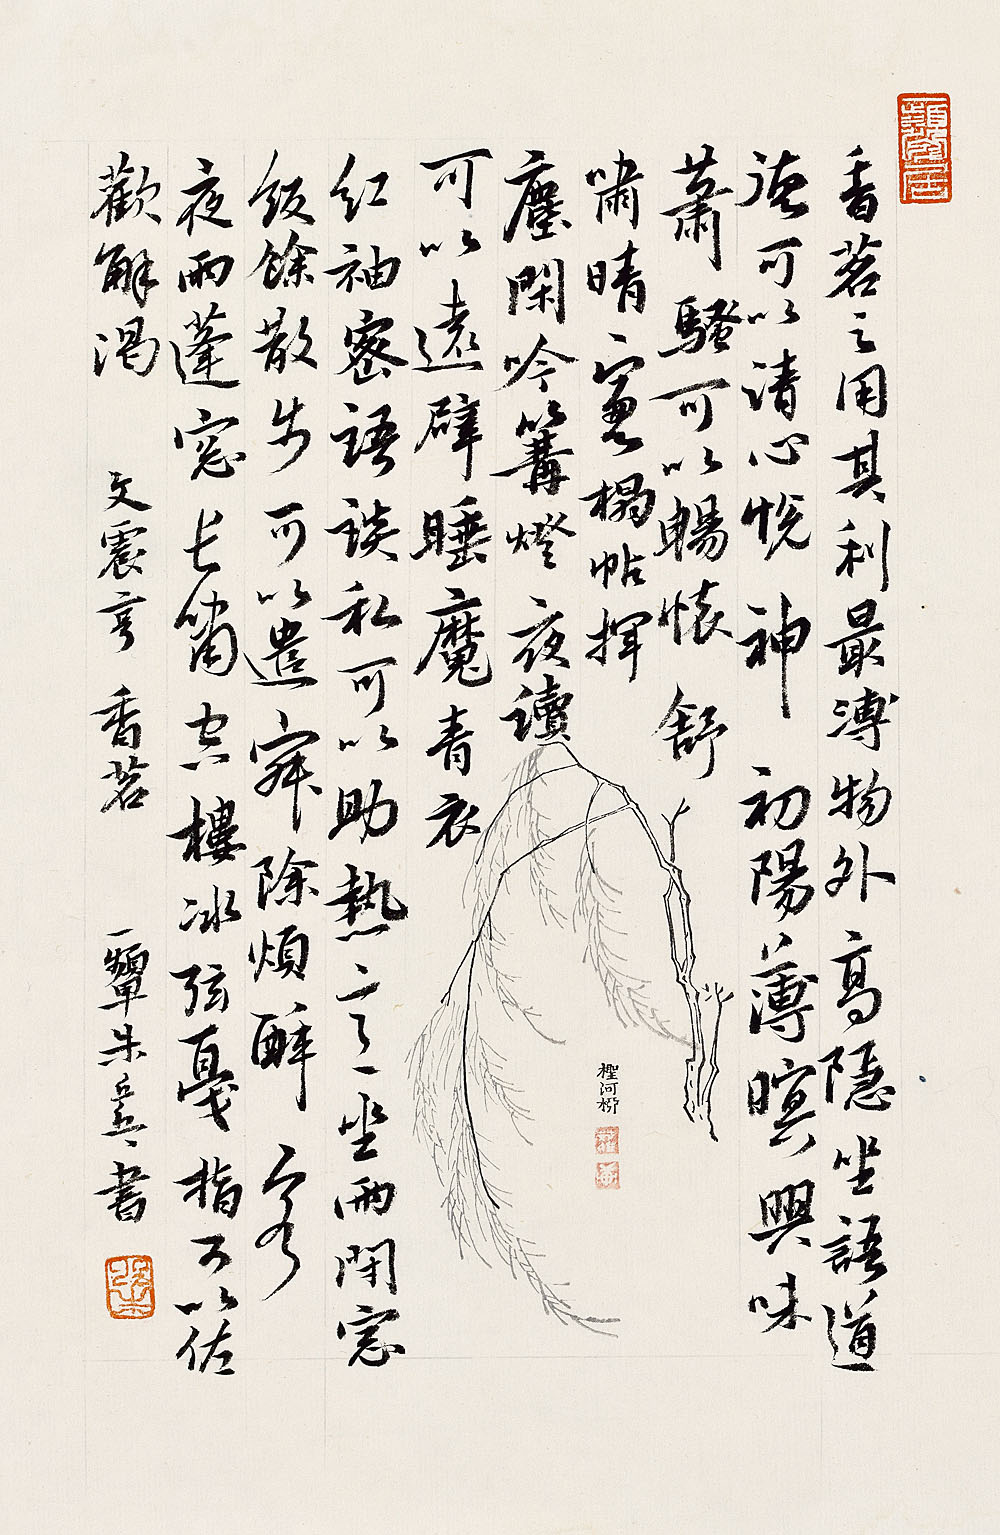 香茗之用其利最溥物外高隱坐語道
德可以清心悅神初陽薄暝興味
蕭騷可以暢懷舒
嘯晴窗榻帖揮
塵閑吟篝燈夜讀
可以遠辟睡魔青衣
紅袖密語談私可以助熱意坐雨閉窓
飯餘散步可以遣寂除煩醉客
夜雨蓬窓長嘯空樓冰弦戛指可以佐
歡解渴 文震亨 香茗 書
檉河柳